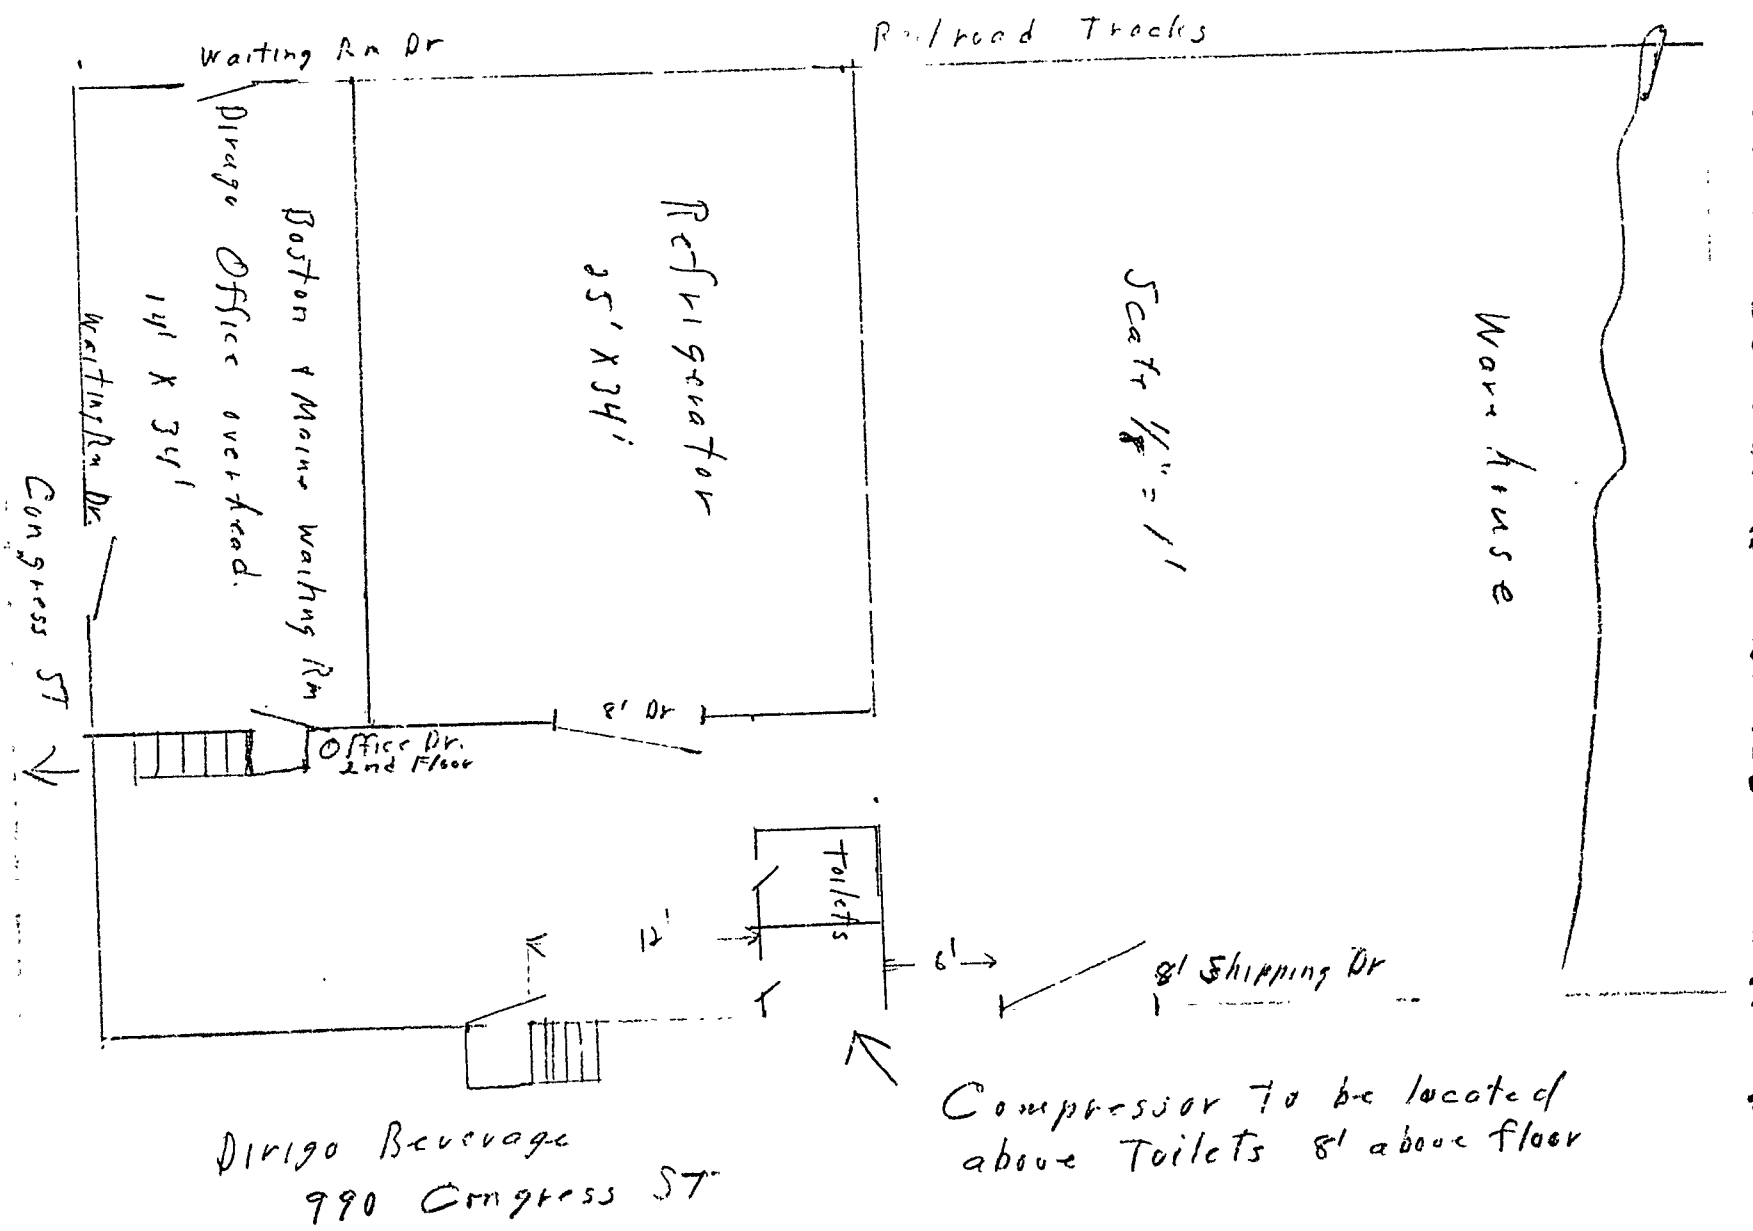 Waiting Rm Dr
Railroad Tracks
Dirago Office overhead.
Boston & Maine Waiting Rm
14' X 34'
Waiting Rm Dr.
Refrigerator
25' X 34'
Scale 1/8" = 1'
Ware house
Congress ST
8' Dr
Office Dr.
2nd Floor
Toilets
12'
6'
8' Shipping Dr
Compressor To be located
above Toilets 8' above floor
Dirigo Beverage
990 Congress ST